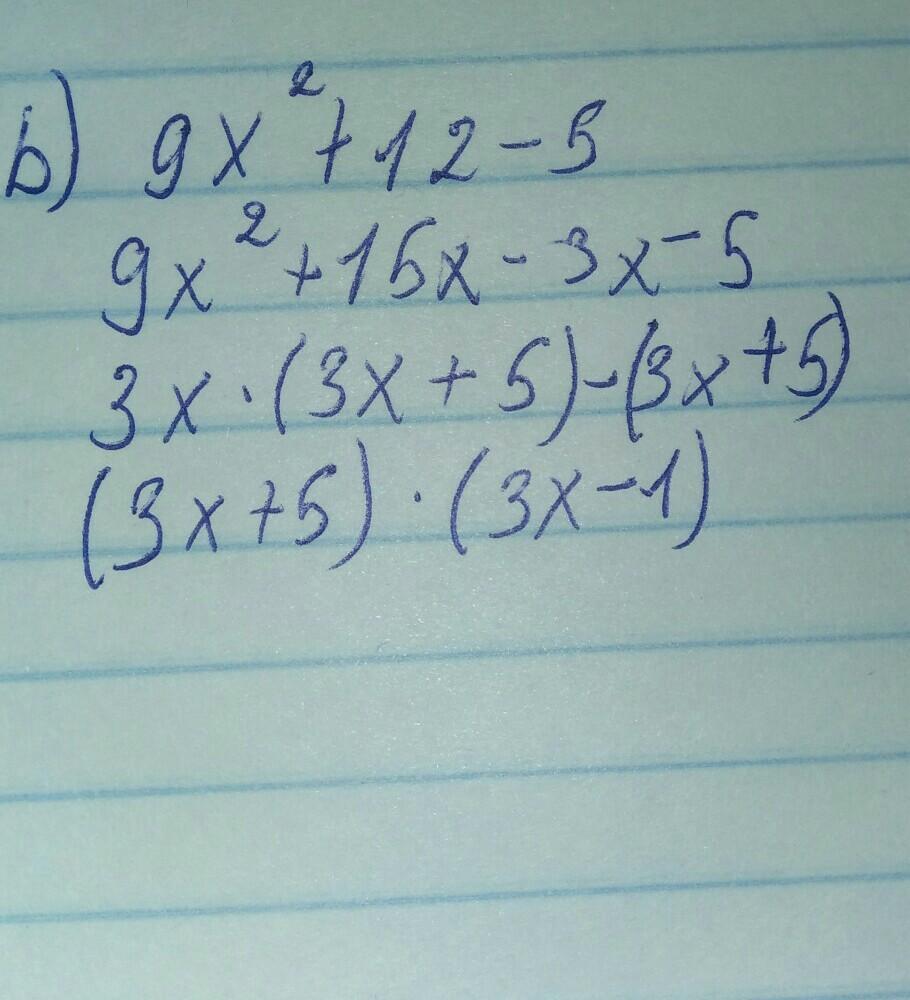 b) 9x² + 12 - 5
9x² + 15x - 3x - 5
3x · (3x + 5) - (3x + 5)
(3x + 5) · (3x - 1)